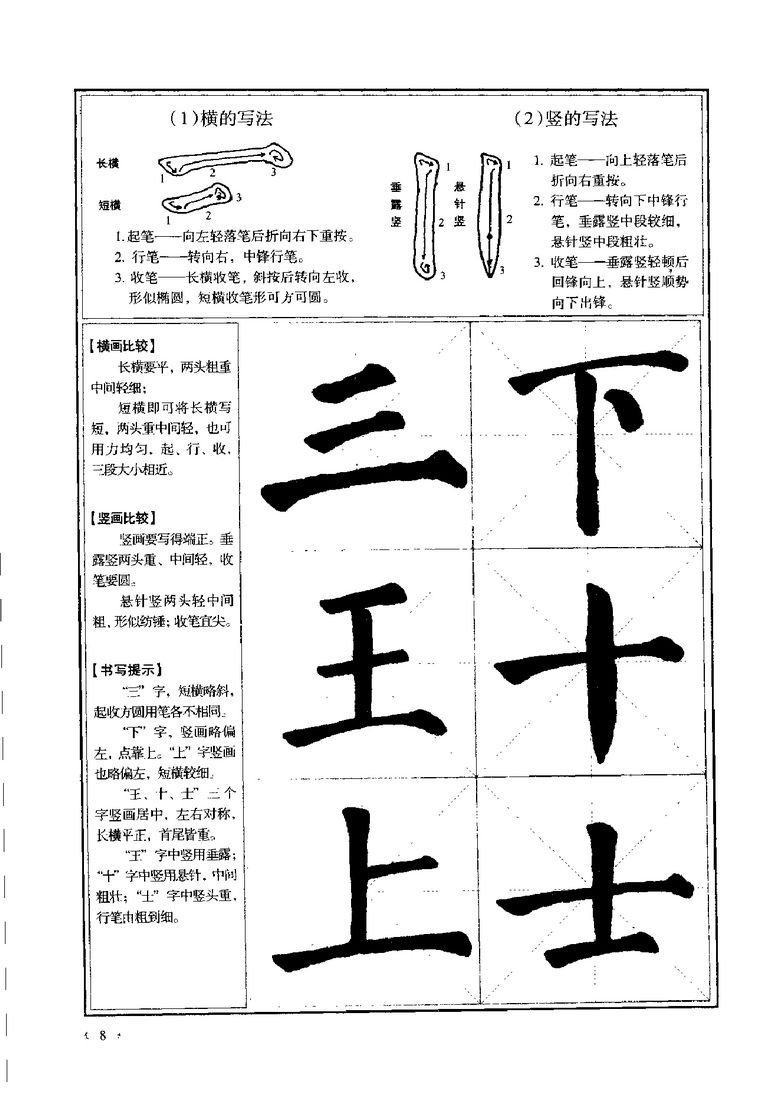 (1)横的写法
长横
1
2
3
短横
1
2
3
1.起笔——向左轻落笔后折向右下重按。
2. 行笔——转向右，中锋行笔。
3. 收笔——长横收笔，斜按后转向左收，
形似椭圆，短横收笔形可方可圆。
(2)竖的写法
垂露竖
1
2
3
悬针竖
1
2
3
1. 起笔——向上轻落笔后
折向右重按。
2. 行笔——转向下中锋行
笔，垂露竖中段较细，
悬针竖中段粗壮。
3. 收笔——垂露竖轻顿后
回锋向上，悬针竖顺势
向下出锋。
【横画比较】
长横要平，两头粗重
中间轻细；
短横即可将长横写
短，两头重中间轻，也可
用力均匀，起、行、收，
三段大小相近。
【竖画比较】
竖画要写得端正。垂
露竖两头重、中间轻，收
笔要圆。
悬针竖两头轻中间
粗，形似纺锤；收笔宜尖。
【书写提示】
“三”字，短横略斜，
起收方圆用笔各不相同。
“下”字，竖画略偏
左，点靠上。“上”字竖画
也略偏左，短横较细。
“王、十、士”三个
字竖画居中，左右对称，
长横平正，首尾皆重。
“王”字中竖用垂露；
“十”字中竖用悬针，中间
粗壮；“士”字中竖头重，
行笔由粗到细。
三 下
王 十
上 士
8